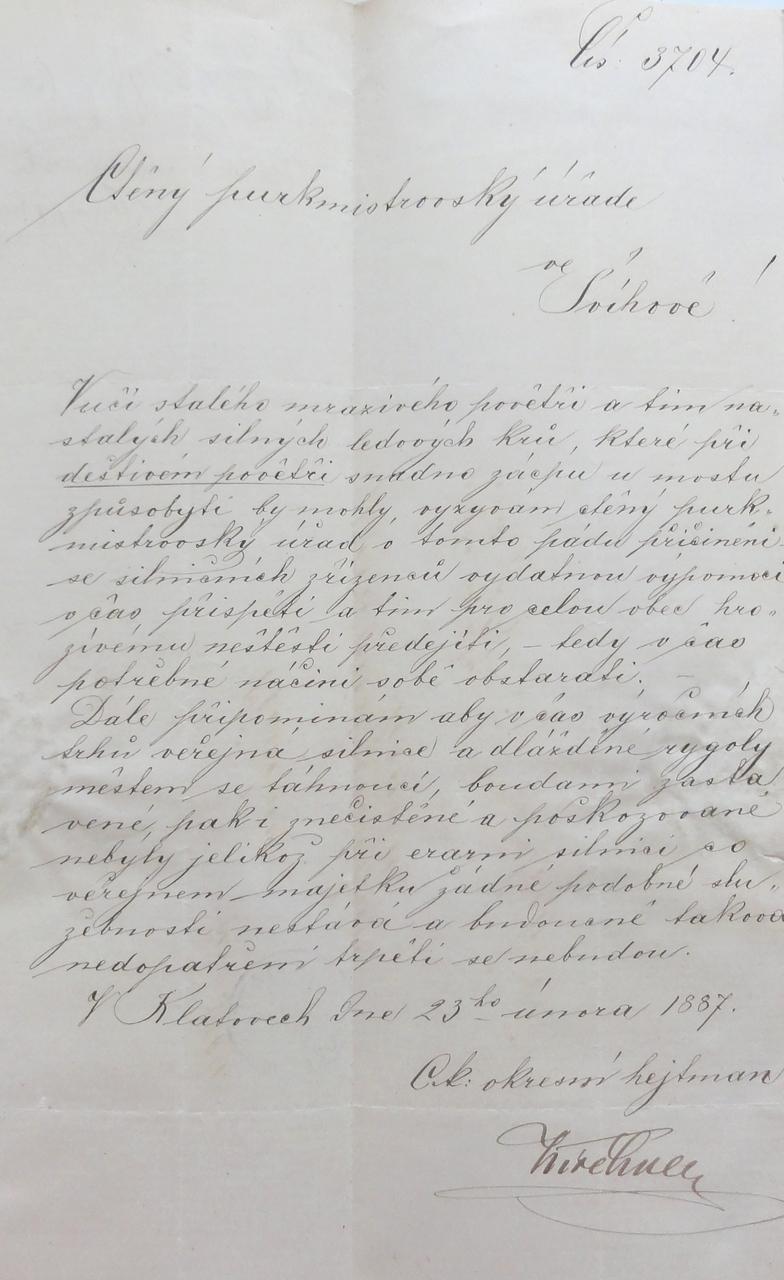 Čís: 3704.
Ctěný purkmistrovský úřade
ve
Švihově!
Vučí stalého mrazivého povětří a tim na-
stalých silných ledových krů, které při
deštivém povětří snadno zácpu u mostu
způsobyti by mohly, vyzyvám ctěný purk-
mistrovský úřad, v tomto pádu přičinění
se silničních zřízenců vydatnou výpomocí
v čas přispěti a tim pro celou obec hro-
zívému neštěstí předejíti, – tedy v čas
potřebné náčiní sobě obstarati. –
Dále připominám aby v čas výročních
trhů veřejná silnice a dlážděné rygoly
městem se táhnoucí, boudami zasta
vené, pak i znečistěné a poškozované
nebyly jelikož při erarni silnici co
veřejnem majetku žádné podobné slu-
žebnosti nestává a budoucně takova
nedopatření trpěti se nebudou.
V Klatovech dne 23ho února 1887.
C.k: okresní hejtman